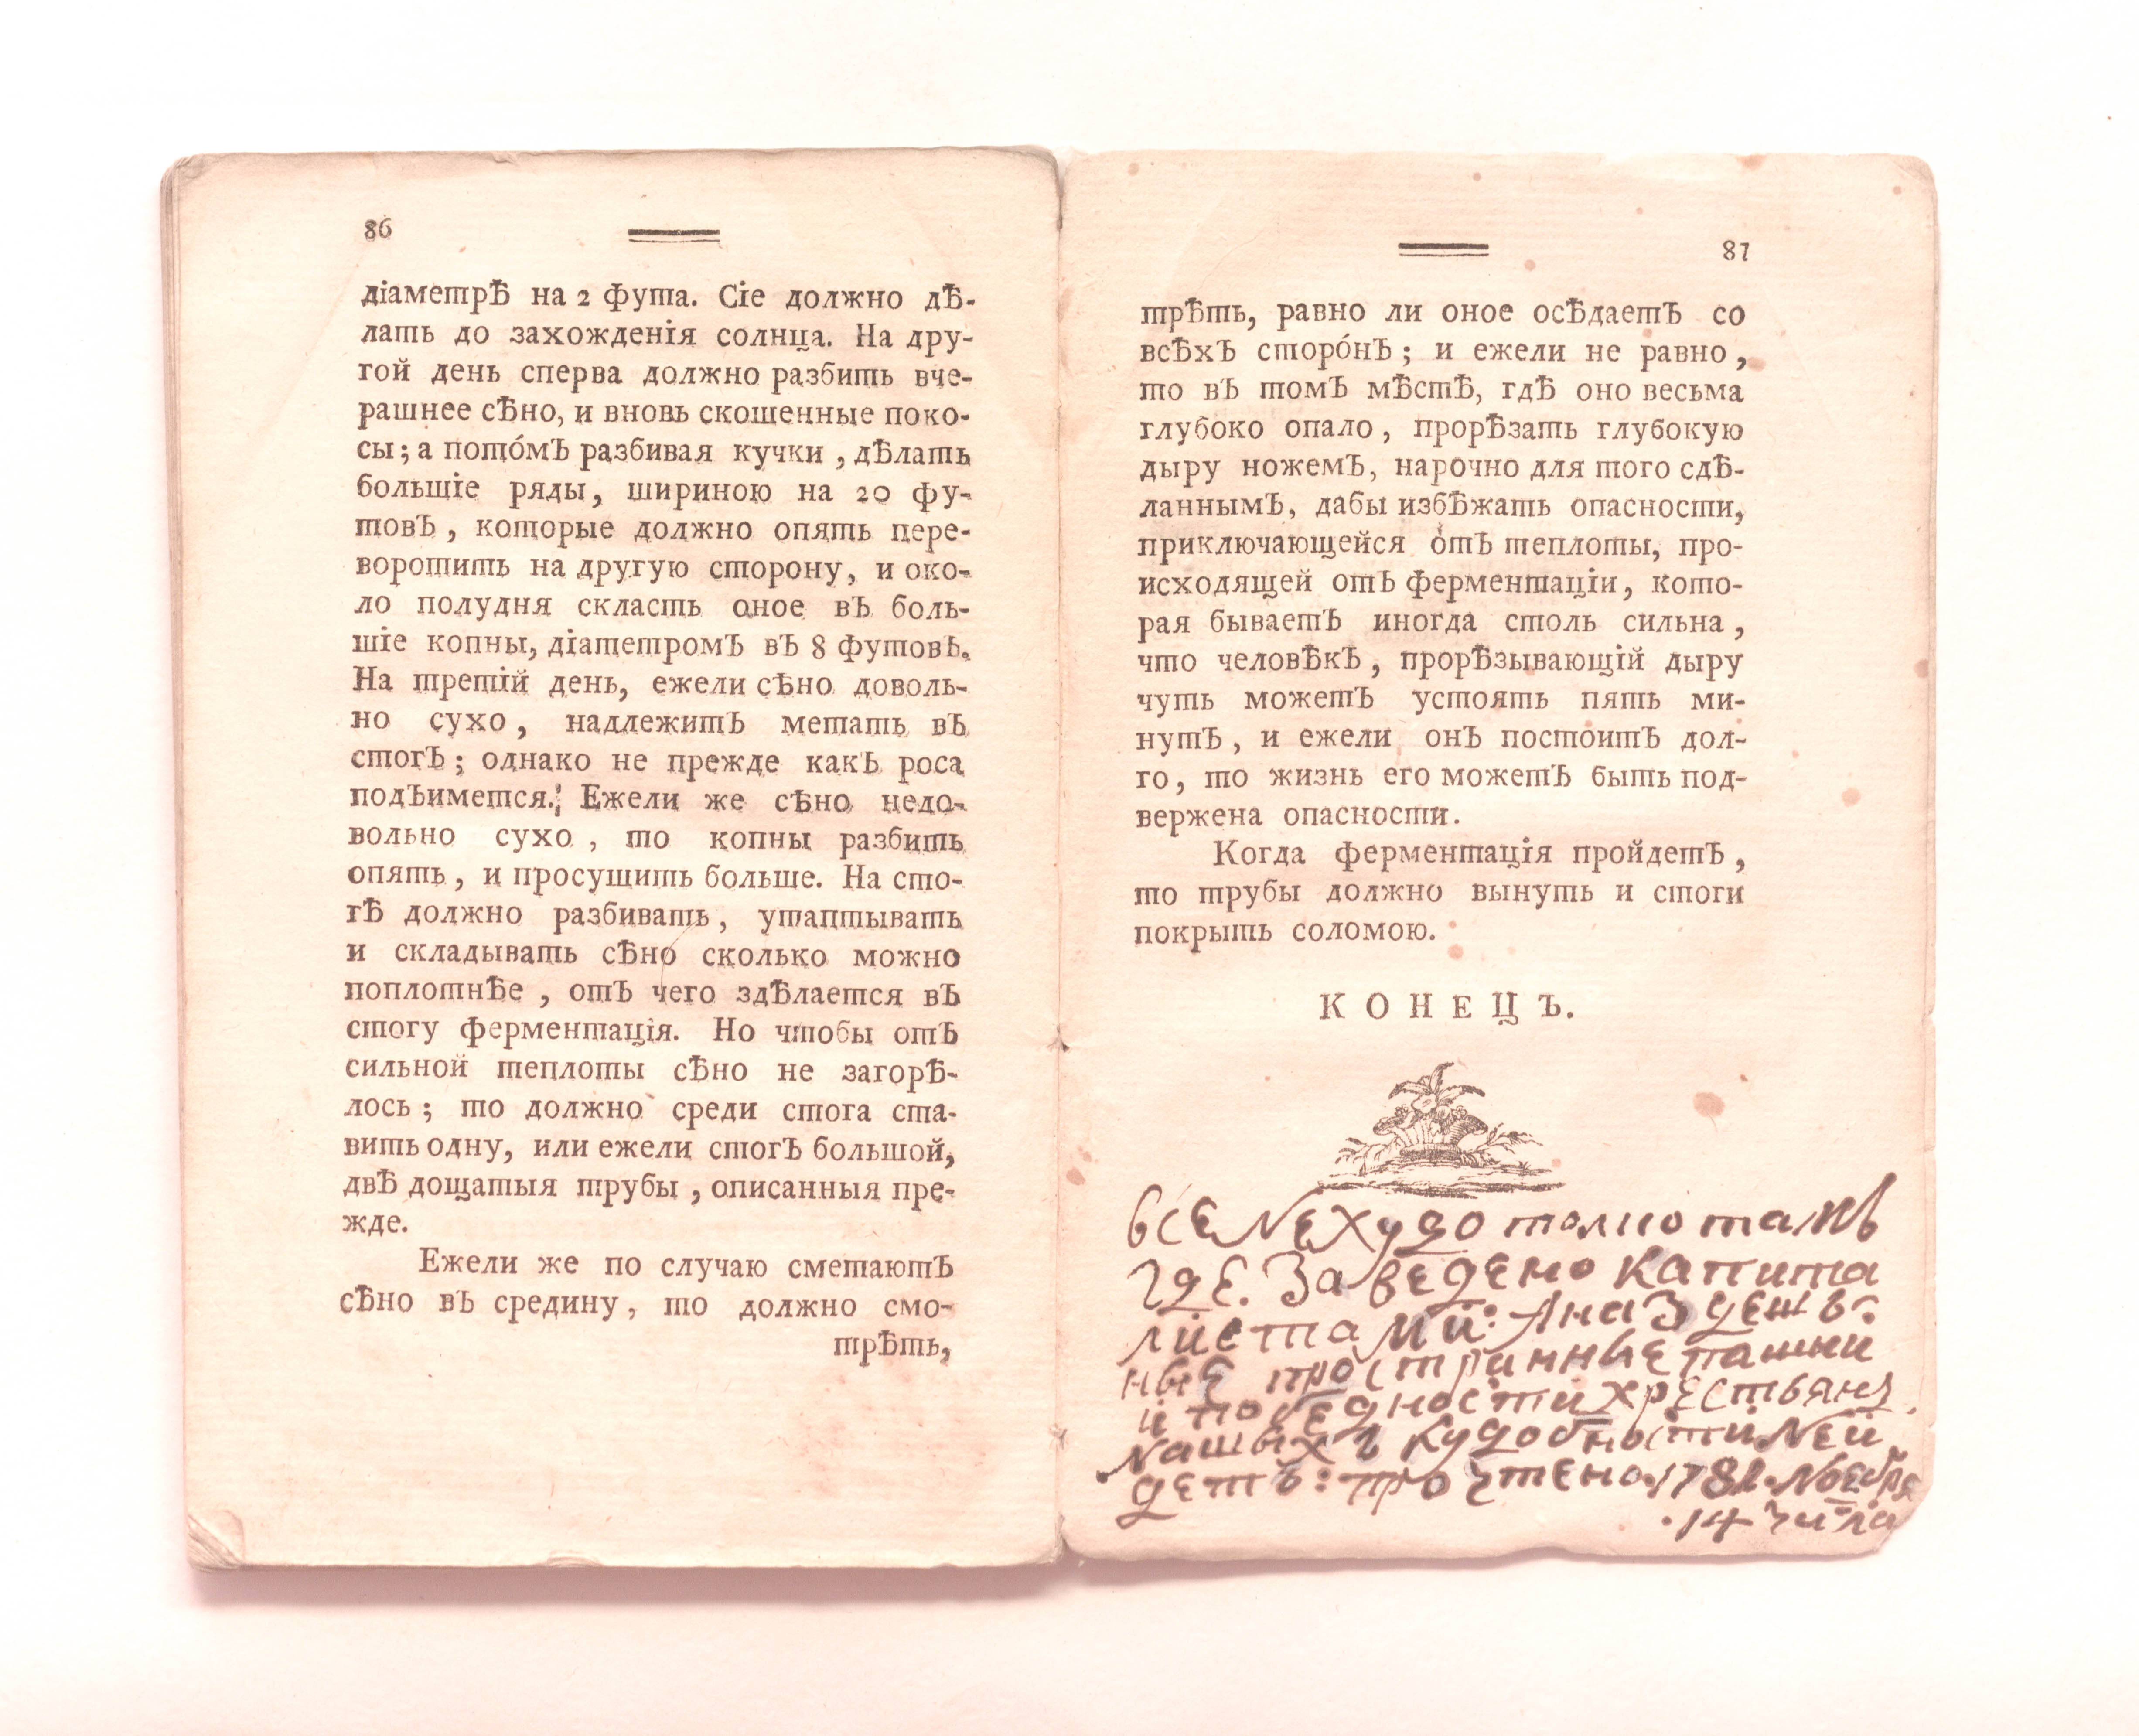 86
діаметрѣ на 2 фута. Сіе должно дѣ-
лать до захожденія солнца. На дру-
гой день сперва должно разбить вче-
рашнее сѣно, и вновь скошенные поко-
сы; а пото́мъ разбивая кучки, дѣлать
большіе ряды, шириною на 20 фу-
товъ, которые должно опять пере-
воротить на другую сторону, и око-
ло полудня скласть оное въ боль-
шіе копны, діатетромъ въ 8 футовъ.
На третій день, ежели сѣно доволь-
но сухо, надлежитъ метать въ
стогъ; однако не прежде какъ роса
подъимется. Ежели же сѣно недо-
вольно сухо, то копны разбить
опять, и просушить больше. На сто-
гѣ должно разбивать, утаптывать
и складывать сѣно сколько можно
поплотнѣе, отъ чего здѣлается въ
стогу ферментація. Но чтобы отъ
сильной теплоты сѣно не загорѣ-
лось; то должно среди стога ста-
вить одну, или ежели стогъ большой,
двѣ дощатыя трубы, описанныя пре-
жде.
Ежели же по случаю сметаютъ
сѣно въ средину, то должно смо-
трѣть,
87
трѣть, равно ли оное осѣдаетъ со
всѣхъ сторо́нъ; и ежели не равно,
то въ томъ мѣстѣ, гдѣ оно весьма
глубоко опало, прорѣзать глубокую
дыру ножемъ, нарочно для того сдѣ-
ланнымъ, дабы избѣжать опасности,
приключающейся отъ теплоты, про-
исходящей отъ ферментаціи, кото-
рая бываетъ иногда столь сильна,
что человѣкъ, прорѣзывающій дыру
чуть можетъ устоять пять ми-
нутъ, и ежели онъ постоитъ дол-
го, то жизнь его можетъ быть под-
вержена опасности.
Когда ферментація пройдетъ,
то трубы должно вынуть и стоги
покрыть соломою.
КОНЕЦЪ.
все нехудо толко тамъ
где. Заведено капита
листами: Ана Здешъ:
ные пространные пашни
и по бедности хрестьянъ
нашыхъ кудобности неи
детъ: прочтено. 1781. Ноебря
.14 числа